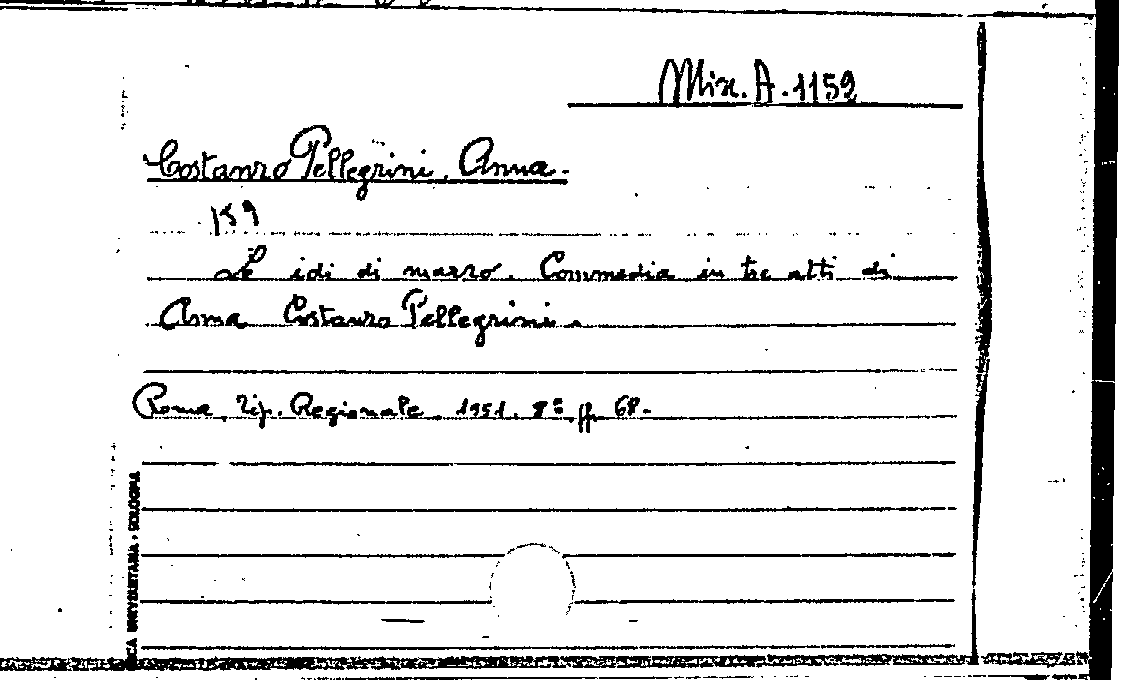 Misc. A. 1159
Costanzo Pellegrini, Anna.
159
Le idi di marzo. Commedia in tre atti di
Anna Costanzo Pellegrini.
Roma, Tip. Regionale, 1951. 8º pp. 68.
UNIVERSITARIA - BOLOGNA